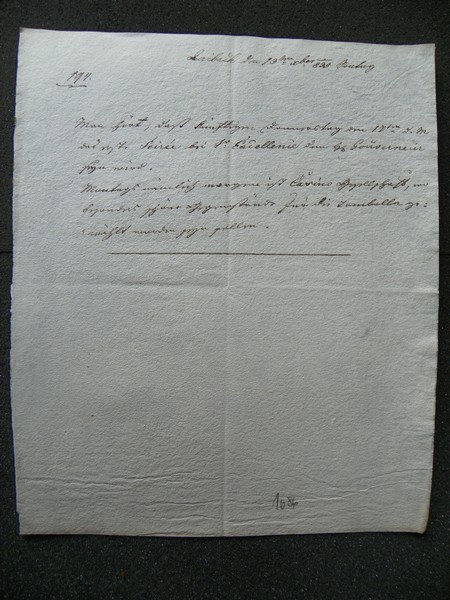 Laibach den 13ten 830 Sontag
194.
Man hört, daß künftigen Donnerstag den 17ten d. M
das erste Soirée bei Sr Excellenz dem H Gouverneur
seyn wird.
Montags nämlich morgen ist Casino Gesellschaft, wo
besonders schöne Gegenstände für die Tombolla ge-
wählt worden seyn sollen.